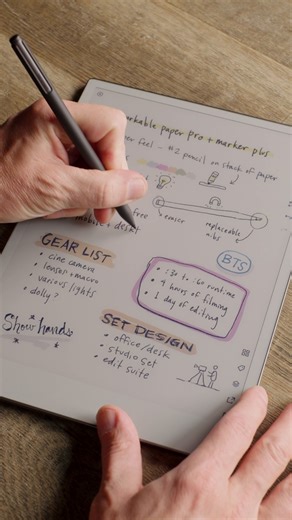 markable paper pro + marker plus
per feel - #2 pencil on stack of paper
free
eraser
replaceable
nibs
+ desk
GEAR LIST
• cine camera
• lenses + macro
• various lights
• dolly?
BTS
• :30 to :60 runtime
• 4 hours of filming
• 1 day of editing
Show hands
SET DESIGN
• office/desk
• studio set
• edit suite